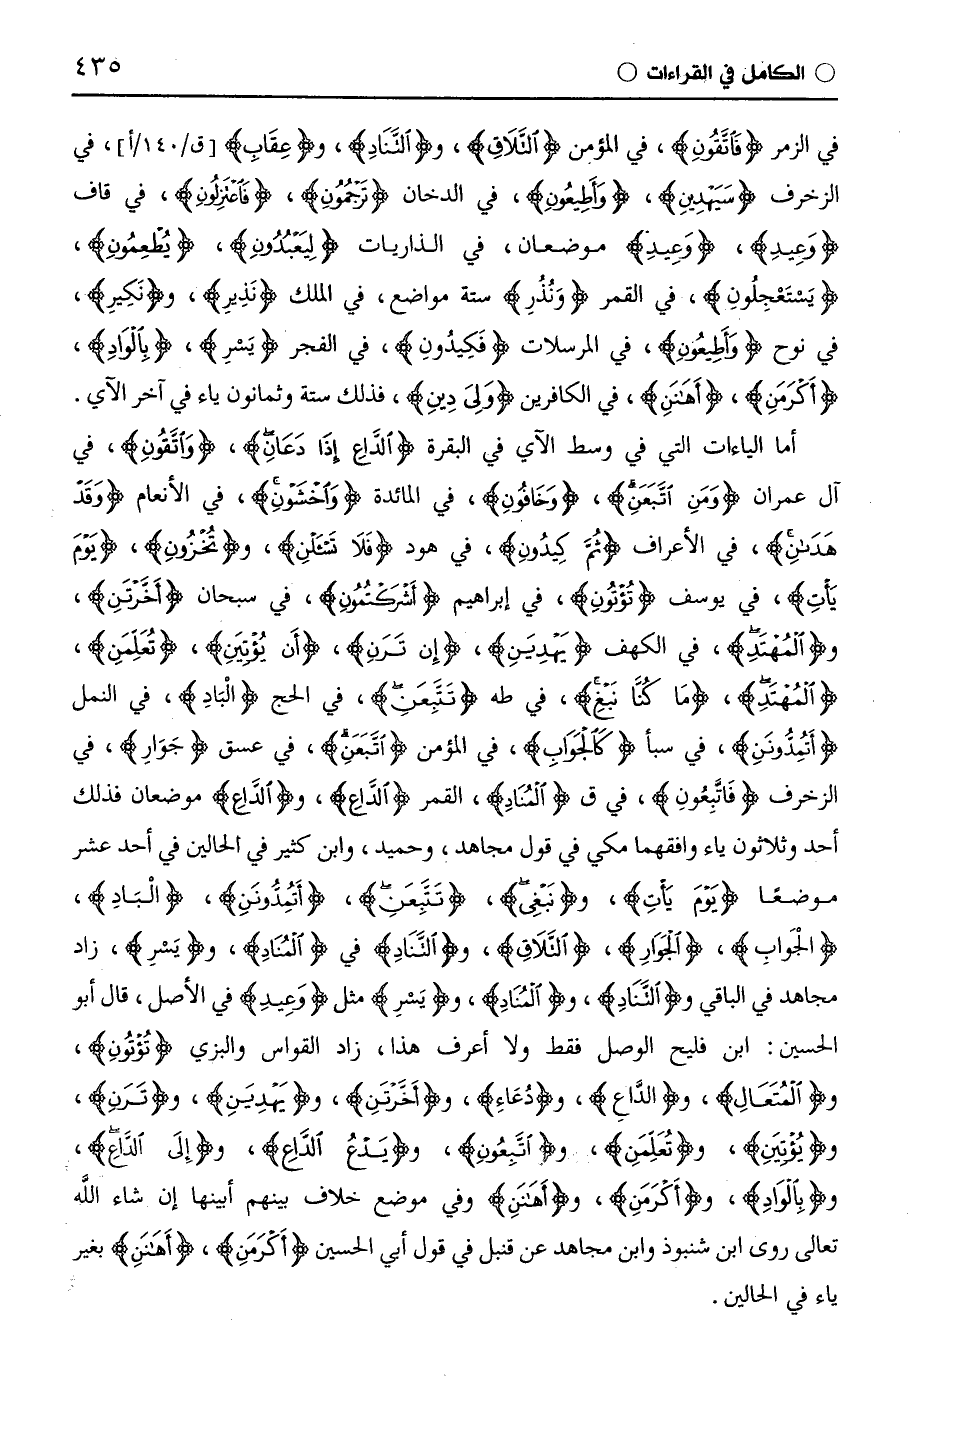 ○ الكامل في القراءات ○ ٤٣٥
في الزمر ﴿فَاتَّقُونِ﴾، في المؤمن ﴿التَّلَاقِ﴾، و﴿التَّنَادِ﴾، و﴿عِقَابِ﴾ [ق/١٤٠/أ]، في
الزخرف ﴿سَيَهْدِينِ﴾، ﴿وَأَطِيعُونِ﴾، في الدخان ﴿تَرْجُمُونِ﴾، ﴿فَاعْتَزِلُونِ﴾، في قاف
﴿وَعِيدِ﴾، ﴿وَعِيدِ﴾ موضعان، في الذاريات ﴿لِيَعْبُدُونِ﴾، ﴿يُطْعِمُونِ﴾،
﴿يَسْتَعْجِلُونِ﴾، في القمر ﴿وَنُذُرِ﴾ ستة مواضع، في الملك ﴿نَذِيرِ﴾، و﴿نَكِيرِ﴾،
في نوح ﴿وَأَطِيعُونِ﴾، في المرسلات ﴿فَكِيدُونِ﴾، في الفجر ﴿يَسْرِ﴾، ﴿بِالْوَادِ﴾،
﴿أَكْرَمَنِ﴾، ﴿أَهَانَنِ﴾، في الكافرين ﴿وَلِيَ دِينِ﴾، فذلك ستة وثمانون ياء في آخر الآي.
أما الياءات التي في وسط الآي في البقرة ﴿الدَّاعِ إِذَا دَعَانِ﴾، ﴿وَاتَّقُونِ﴾، في
آل عمران ﴿وَمَنِ اتَّبَعَنِ﴾، ﴿وَخَافُونِ﴾، في المائدة ﴿وَاخْشَوْنِ﴾، في الأنعام ﴿وَقَدْ
هَدَانِ﴾، في الأعراف ﴿ثُمَّ كِيدُونِ﴾، في هود ﴿فَلَا تَسْئَلْنِ﴾، و﴿تُخْزُونِ﴾، ﴿يَوْمَ
يَأْتِ﴾، في يوسف ﴿تُؤْتُونِ﴾، في إبراهيم ﴿أَشْرَكْتُمُونِ﴾، في سبحان ﴿أَخَّرْتَنِ﴾،
و﴿الْمُهْتَدِ﴾، في الكهف ﴿يَهْدِيَنِ﴾، ﴿إِن تَرَنِ﴾، ﴿أَن يُؤْتِيَنِ﴾، ﴿تُعَلِّمَنِ﴾،
﴿الْمُهْتَدِ﴾، ﴿مَا كُنَّا نَبْغِ﴾، في طه ﴿تَتَّبِعَنِ﴾، في الحج ﴿الْبَادِ﴾، في النمل
﴿أَتُمِدُّونَنِ﴾، في سبأ ﴿كَالْجَوَابِ﴾، في المؤمن ﴿اتَّبَعَنِ﴾، في عسق ﴿جَوَارِ﴾، في
الزخرف ﴿فَاتَّبِعُونِ﴾، في ق ﴿الْمُنَادِ﴾، القمر ﴿الدَّاعِ﴾، و﴿الدَّاعِ﴾ موضعان فذلك
أحد وثلاثون ياء وافقهما مكي في قول مجاهد، وحميد، وابن كثير في الحالين في أحد عشر
موضعًا ﴿يَوْمَ يَأْتِ﴾، و﴿نَبْغِي﴾، ﴿تَتَّبِعَنِ﴾، ﴿أَتُمِدُّونَنِ﴾، ﴿الْبَادِ﴾،
﴿الْجَوابِ﴾، ﴿الْجَوَارِ﴾، ﴿التَّلَاقِ﴾، و﴿التَّنَادِ﴾ في ﴿الْمُنَادِ﴾، و﴿يَسْرِ﴾، زاد
مجاهد في الباقي و﴿التَّنَادِ﴾، و﴿الْمُنَادِ﴾، و﴿يَسْرِ﴾ مثل ﴿وَعِيدِ﴾ في الأصل، قال أبو
الحسين: ابن فليح الوصل فقط ولا أعرف هذا، زاد القواس والبزي ﴿تُؤْتُونِ﴾،
و﴿الْمُتَعَالِ﴾، و﴿الدَّاعِ﴾، و﴿دُعَاءِ﴾، و﴿أَخَّرْتَنِ﴾، و﴿يَهْدِيَنِ﴾، و﴿تَرَنِ﴾،
و﴿يُؤْتِيَنِ﴾، و﴿تُعَلِّمَنِ﴾، و﴿اتَّبِعُونِ﴾، و﴿يَدْعُ الدَّاعِ﴾، و﴿إِلَى الدَّاعِ﴾،
و﴿بِالْوَادِ﴾، و﴿أَكْرَمَنِ﴾، و﴿أَهَانَنِ﴾ وفي موضع خلاف بينهم أبينها إن شاء اللَّه
تعالى روى ابن شنبوذ وابن مجاهد عن قنبل في قول أبي الحسين ﴿أَكْرَمَنِ﴾، ﴿أَهَانَنِ﴾ بغير
ياء في الحالين.